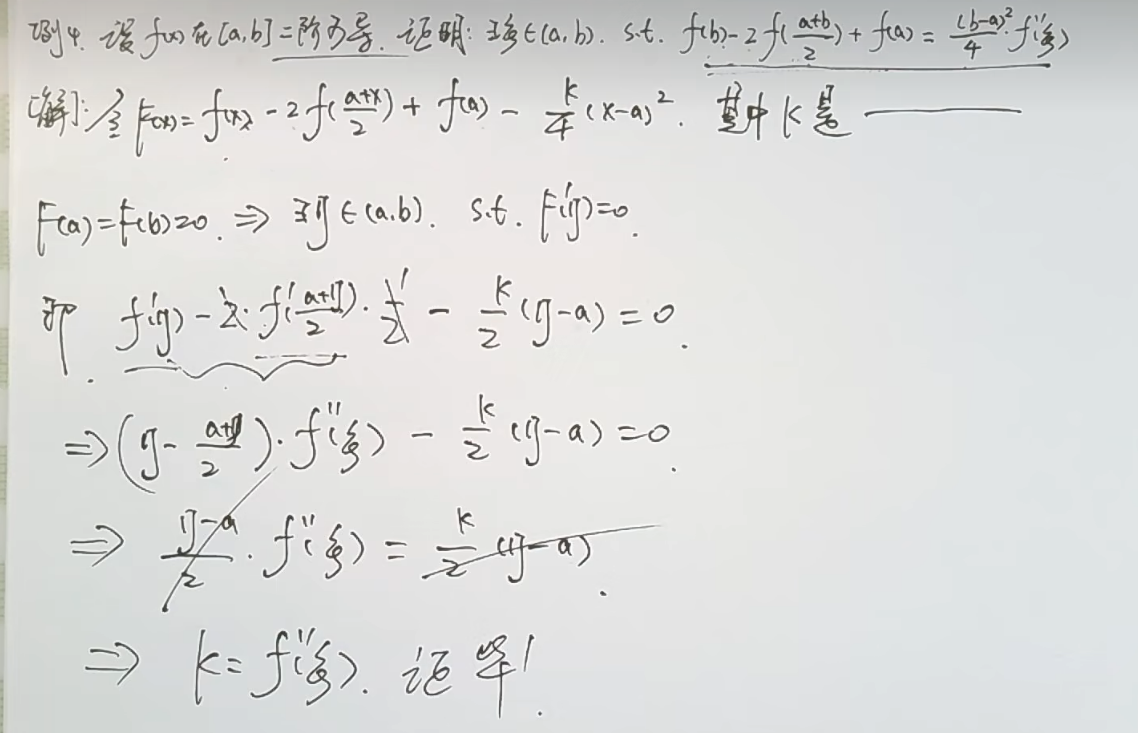 例4. 设 f(x) 在 [a,b] 二阶可导. 证明: ∃ξ∈(a,b). s.t. f(b)-2f((a+b)/2)+f(a)=(b-a)²/4·f''(ξ)
[解]: 令 F(x)=f(x)-2f((a+x)/2)+f(a)-k/4(x-a)². 其中 k是——
F(a)=F(b)=0. ⇒ ∃η∈(a,b). s.t. F'(η)=0.
即 f'(η)-2·f'((a+η)/2)·1/2-k/2(η-a)=0.
⇒(η-(a+η)/2)·f''(ξ)-k/2(η-a)=0.
⇒ (η-a)/2·f''(ξ)=k/2(η-a).
⇒ k=f''(ξ). 证毕!